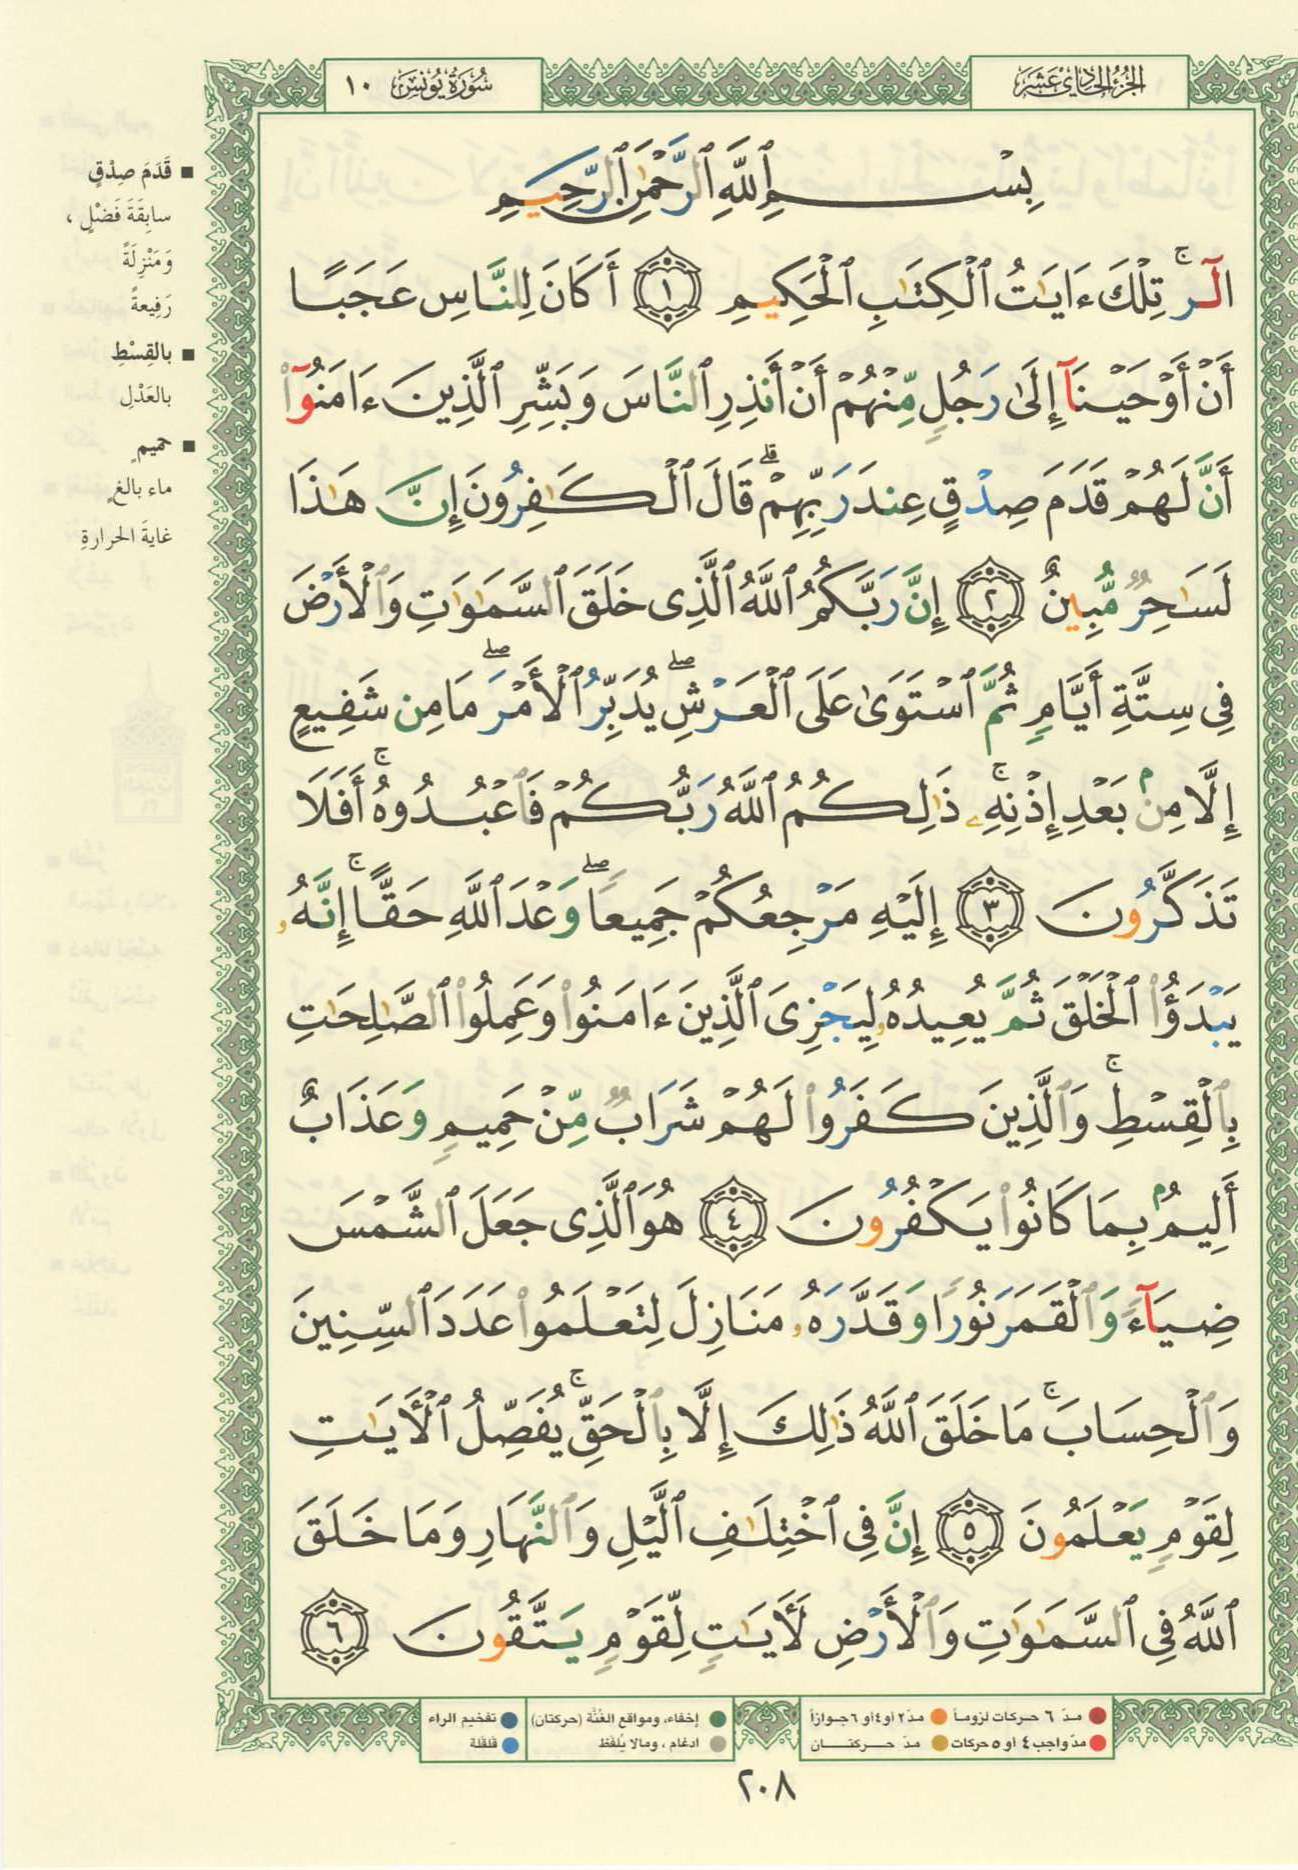 الجزء الحادي عشر
سورة يونس ١٠
بِسْمِ ٱللَّهِ ٱلرَّحْمَٰنِ ٱلرَّحِيمِ
الٓر ۚ تِلْكَ ءَايَٰتُ ٱلْكِتَٰبِ ٱلْحَكِيمِ ١ أَكَانَ لِلنَّاسِ عَجَبًا
أَنْ أَوْحَيْنَآ إِلَىٰ رَجُلٍ مِّنْهُمْ أَنْ أَنذِرِ ٱلنَّاسَ وَبَشِّرِ ٱلَّذِينَ ءَامَنُوٓا۟
أَنَّ لَهُمْ قَدَمَ صِدْقٍ عِندَ رَبِّهِمْ ۗ قَالَ ٱلْكَٰفِرُونَ إِنَّ هَٰذَا
لَسَٰحِرٌ مُّبِينٌ ٢ إِنَّ رَبَّكُمُ ٱللَّهُ ٱلَّذِى خَلَقَ ٱلسَّمَٰوَٰتِ وَٱلْأَرْضَ
فِى سِتَّةِ أَيَّامٍ ثُمَّ ٱسْتَوَىٰ عَلَى ٱلْعَرْشِ ۖ يُدَبِّرُ ٱلْأَمْرَ ۖ مَا مِن شَفِيعٍ
إِلَّا مِنۢ بَعْدِ إِذْنِهِۦ ۚ ذَٰلِكُمُ ٱللَّهُ رَبُّكُمْ فَٱعْبُدُوهُ ۚ أَفَلَا
تَذَكَّرُونَ ٣ إِلَيْهِ مَرْجِعُكُمْ جَمِيعًا ۖ وَعْدَ ٱللَّهِ حَقًّا ۚ إِنَّهُۥ
يَبْدَؤُا۟ ٱلْخَلْقَ ثُمَّ يُعِيدُهُۥ لِيَجْزِىَ ٱلَّذِينَ ءَامَنُوا۟ وَعَمِلُوا۟ ٱلصَّٰلِحَٰتِ
بِٱلْقِسْطِ ۚ وَٱلَّذِينَ كَفَرُوا۟ لَهُمْ شَرَابٌ مِّنْ حَمِيمٍ وَعَذَابٌ
أَلِيمٌۢ بِمَا كَانُوا۟ يَكْفُرُونَ ٤ هُوَ ٱلَّذِى جَعَلَ ٱلشَّمْسَ
ضِيَآءً وَٱلْقَمَرَ نُورًا وَقَدَّرَهُۥ مَنَازِلَ لِتَعْلَمُوا۟ عَدَدَ ٱلسِّنِينَ
وَٱلْحِسَابَ ۚ مَا خَلَقَ ٱللَّهُ ذَٰلِكَ إِلَّا بِٱلْحَقِّ ۚ يُفَصِّلُ ٱلْأَيَٰتِ
لِقَوْمٍ يَعْلَمُونَ ٥ إِنَّ فِى ٱخْتِلَٰفِ ٱلَّيْلِ وَٱلنَّهَارِ وَمَا خَلَقَ
ٱللَّهُ فِى ٱلسَّمَٰوَٰتِ وَٱلْأَرْضِ لَأَيَٰتٍ لِّقَوْمٍ يَتَّقُونَ ٦
■ قَدَمَ صِدْقٍ
سابِقَةَ فَضْلٍ ،
وَمَنْزِلَةً
رَفِيعةً
■ بالقِسْطِ
بالعَدْلِ
■ حميمٍ
ماء بالغٍ
غايةَ الحرارةِ
مدّ ٦ حركات لزوماً ● مدّ ٢ أو ٤ أو ٦ جوازاً
مدّ واجب ٤ أو ٥ حركات ● مدّ حركتان
إخفاء، ومواقع الغُنَّة (حركتان) ● تفخيم الراء
ادغام ، ومالا يُلفَظ ● قلقلة
٢٠٨